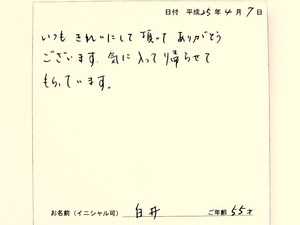 日付 平成25年4月7日
いつも きれいにして 頂って ありがとう
ございます。気に入って帰らせて
もらっています。
お名前（イニシャル可） 白井 ご年齢 55才